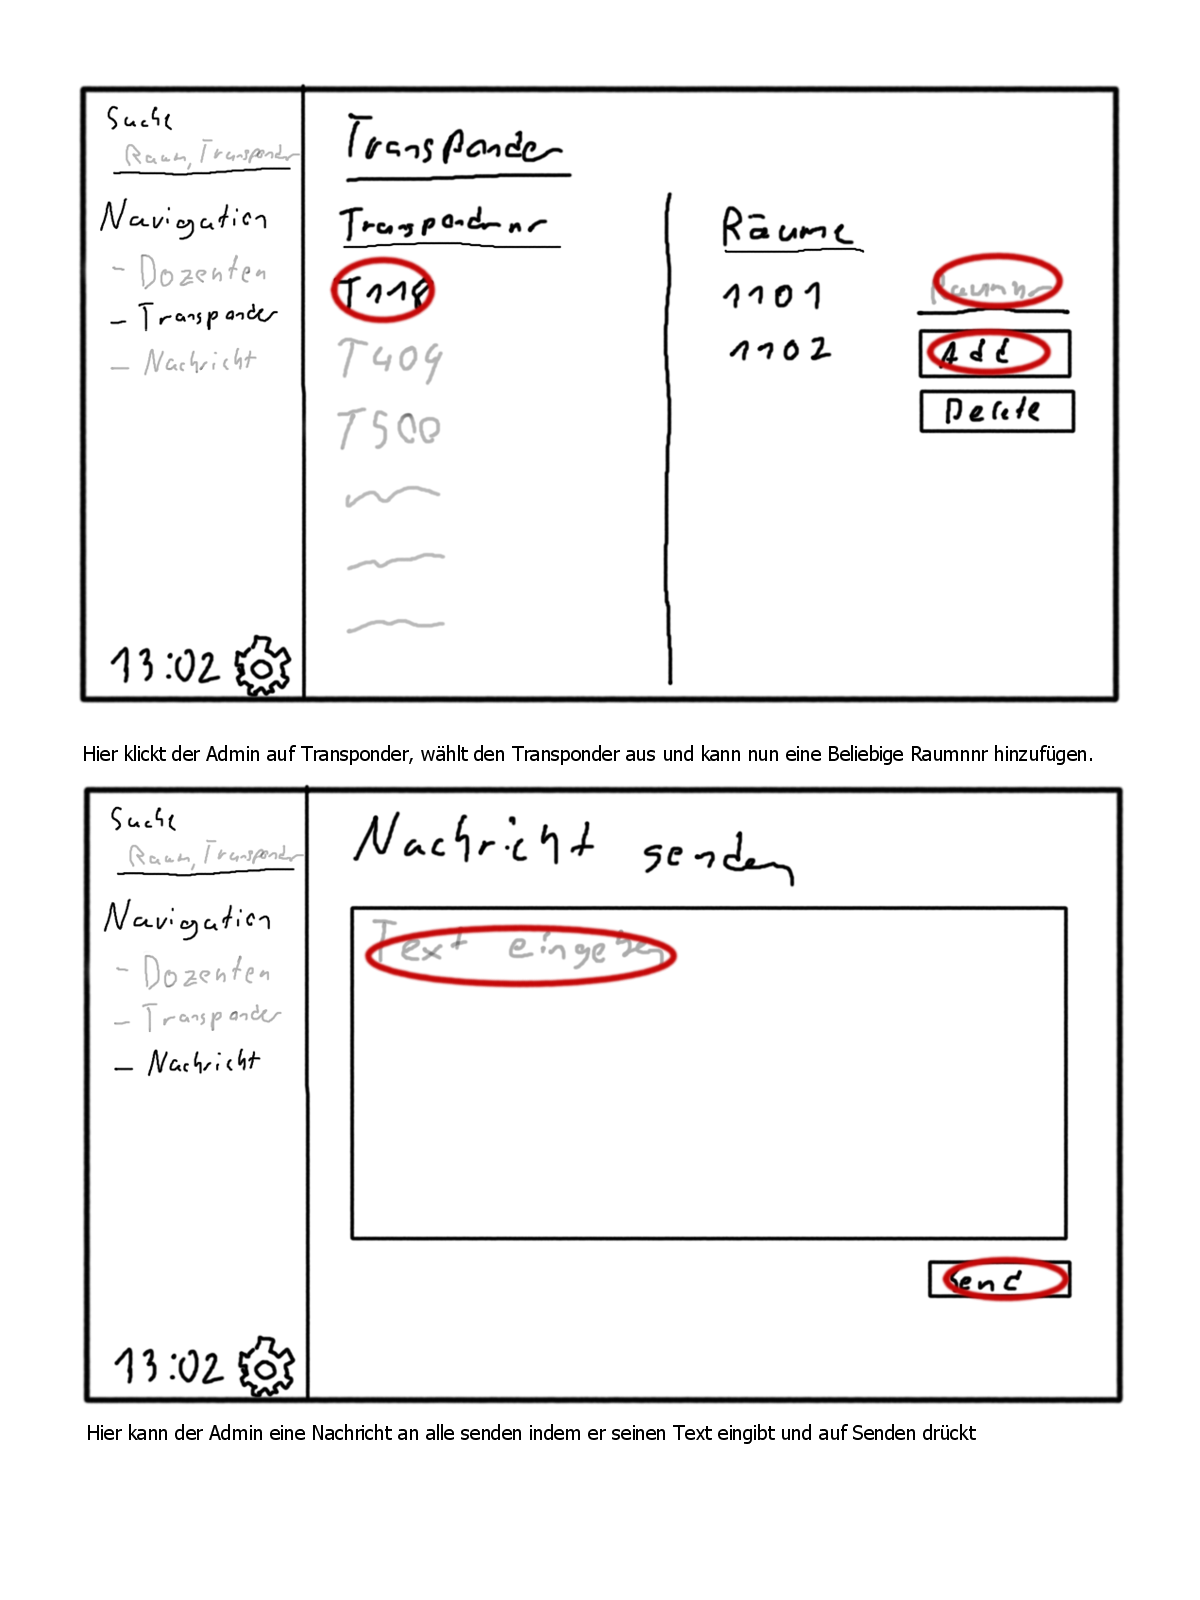 Suche
Raum, Transponder
Navigation
- Dozenten
- Transponder
- Nachricht
13:02
Transponder
Transpondernr
T118
T409
T500
Räume
1101
1102
Raumnr
Add
Delete
Hier klickt der Admin auf Transponder, wählt den Transponder aus und kann nun eine Beliebige Raumnnr hinzufügen.
Suche
Raum, Transponder
Navigation
- Dozenten
- Transponder
- Nachricht
13:02
Nachricht senden
Text eingeben
Send
Hier kann der Admin eine Nachricht an alle senden indem er seinen Text eingibt und auf Senden drückt